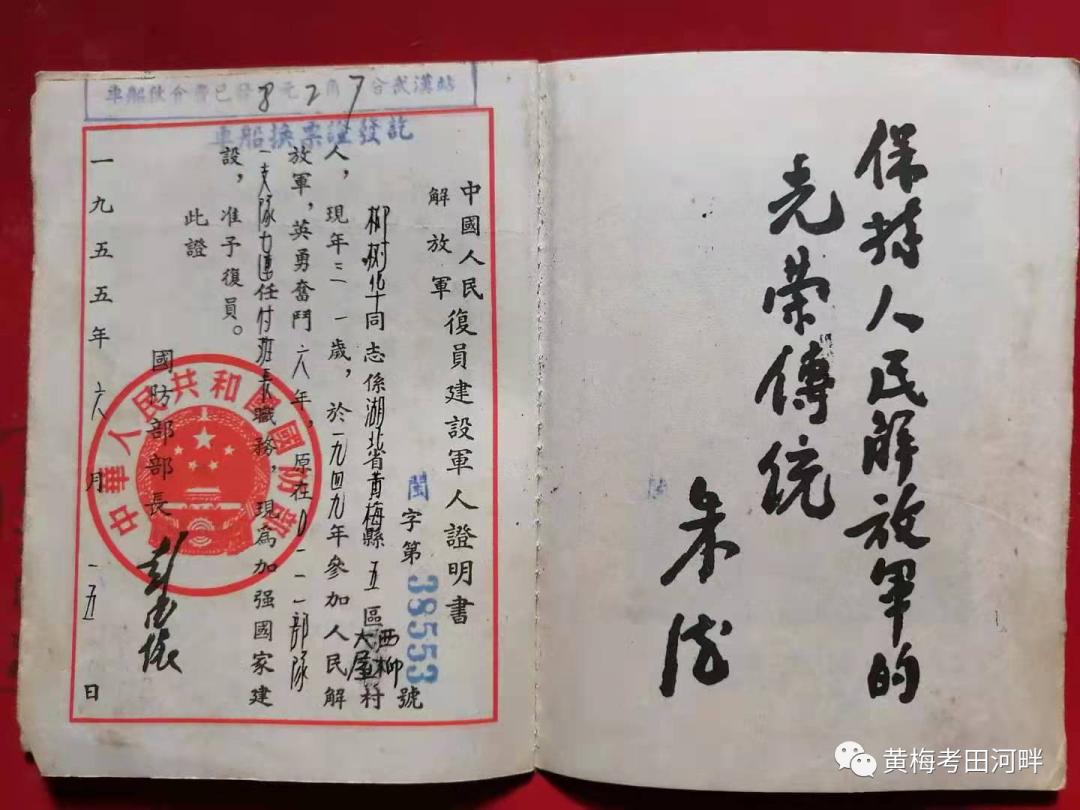 保持人民解放軍的
光荣傳统
朱德
車船伙食費已發8元2角7分武漢站
車船换票證發訖
中國人民解放軍復員建設軍人證明書
閩字第38553號
柳樹华同志係湖北省黄梅縣五區西柳大屋村
人，現年二一歲，於一九四九年參加人民解
放軍，英勇奮鬥六年，原在0一二部隊
一支隊力連任付班長職務，現為加强國家建
設，准予復員。
此證
國防部部長 彭德懷
一九五五年六月一五日
中華人民共和國國防部
黄梅考田河畔